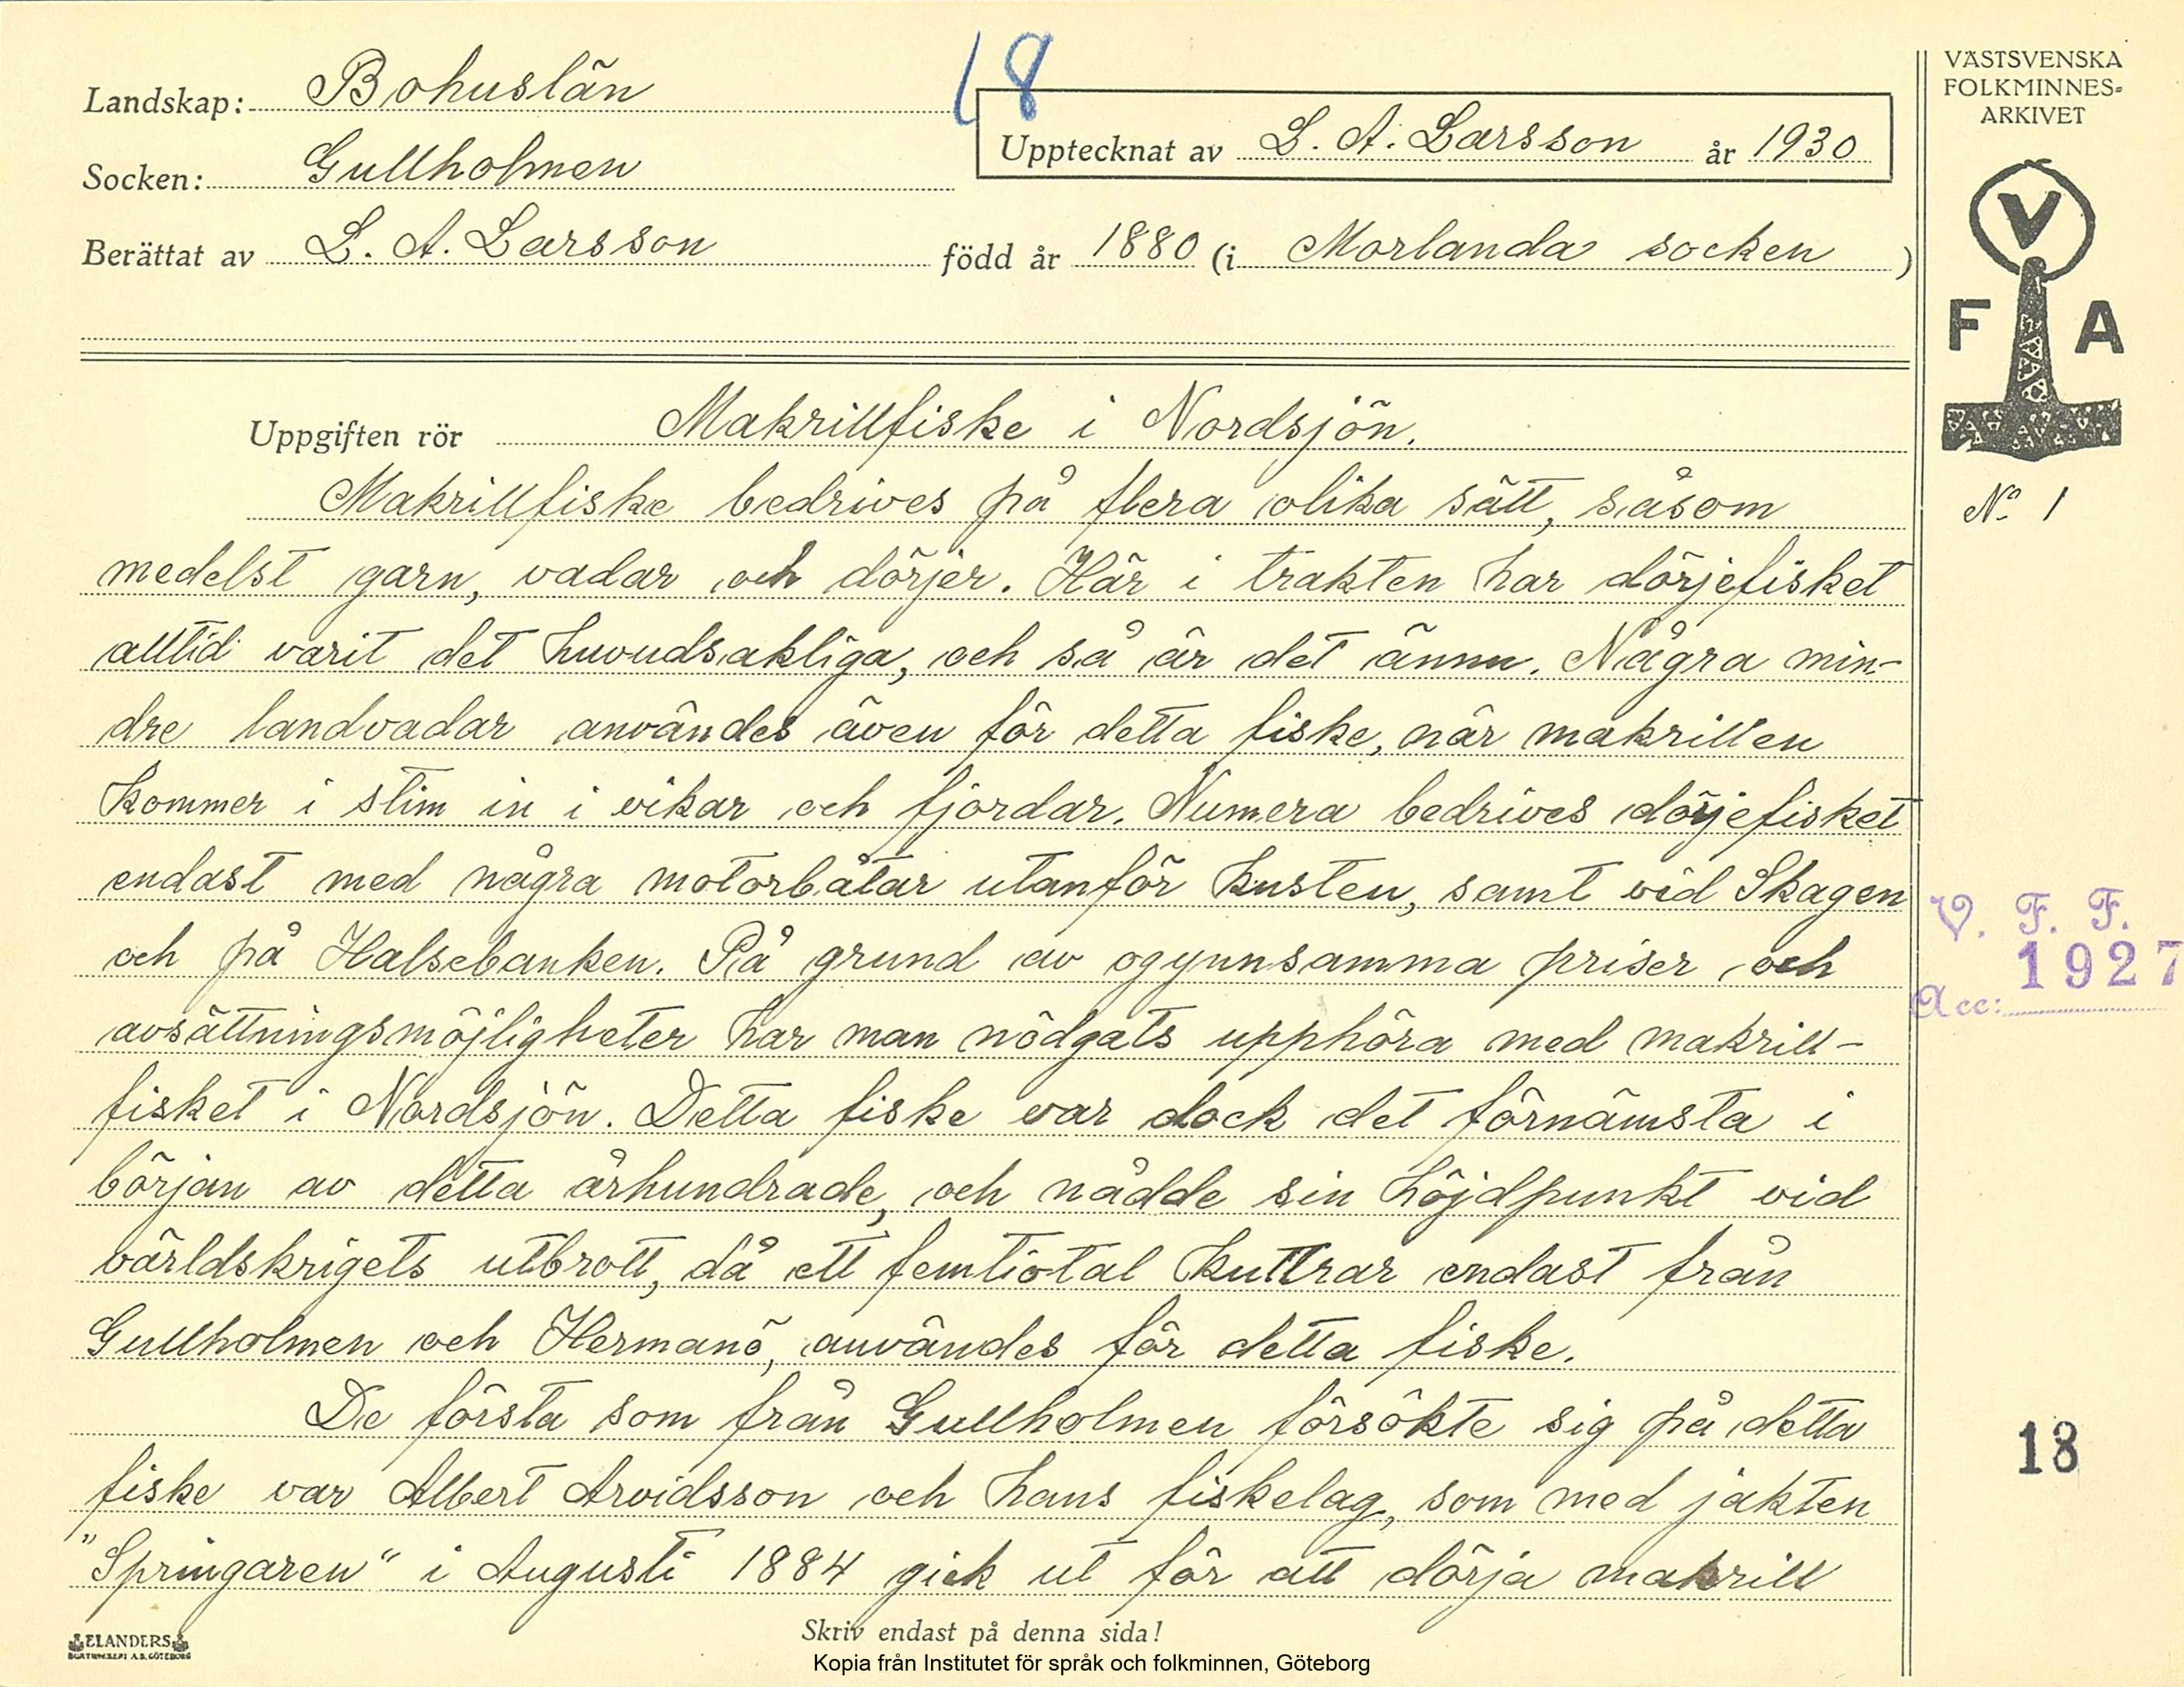 18
Landskap: Bohuslän
Upptecknat av L. A. Larsson år 1930
Socken: Gullholmen
Berättat av L. A. Larsson född år 1880 (i Morlanda socken )
VÄSTSVENSKA
FOLKMINNES-
ARKIVET
V
F A
Uppgiften rör Makrillfiske i Nordsjön.
No 1
Makrillfiske bedrives på flera olika sätt, såsom
medelst garn, vadar och dörjer. Här i trakten har dörjefisket
alltid varit det huvudsakliga, och så är det ännu. Några min-
dre landvadar användes även för detta fiske, när makrillen
kommer i stim in i vikar och fjordar. Numera bedrives dörjefisket
endast med några motorbåtar utanför kusten, samt vid Skagen
och på Halsebanken. På grund av ogynnsamma priser och
avsättningsmöjligheter har man nödgats upphöra med makrill-
fisket i Nordsjön. Detta fiske var dock det förnämsta i
början av detta århundrade, och nådde sin höjdpunkt vid
världskrigets utbrott, då ett femtiotal kuttrar endast från
Gullholmen och Hermanö, användes för detta fiske.
De första som från Gullholmen försökte sig på detta
fiske var Albert Arvidsson och hans fiskelag, som med jakten
"Springaren" i Augusti 1884 gick ut för att dörja makrill
V. F. F.
1927
Acc:
18
Skriv endast på denna sida!
ELANDERS
BOKTRYCKERI A.B. GÖTEBORG
Kopia från Institutet för språk och folkminnen, Göteborg